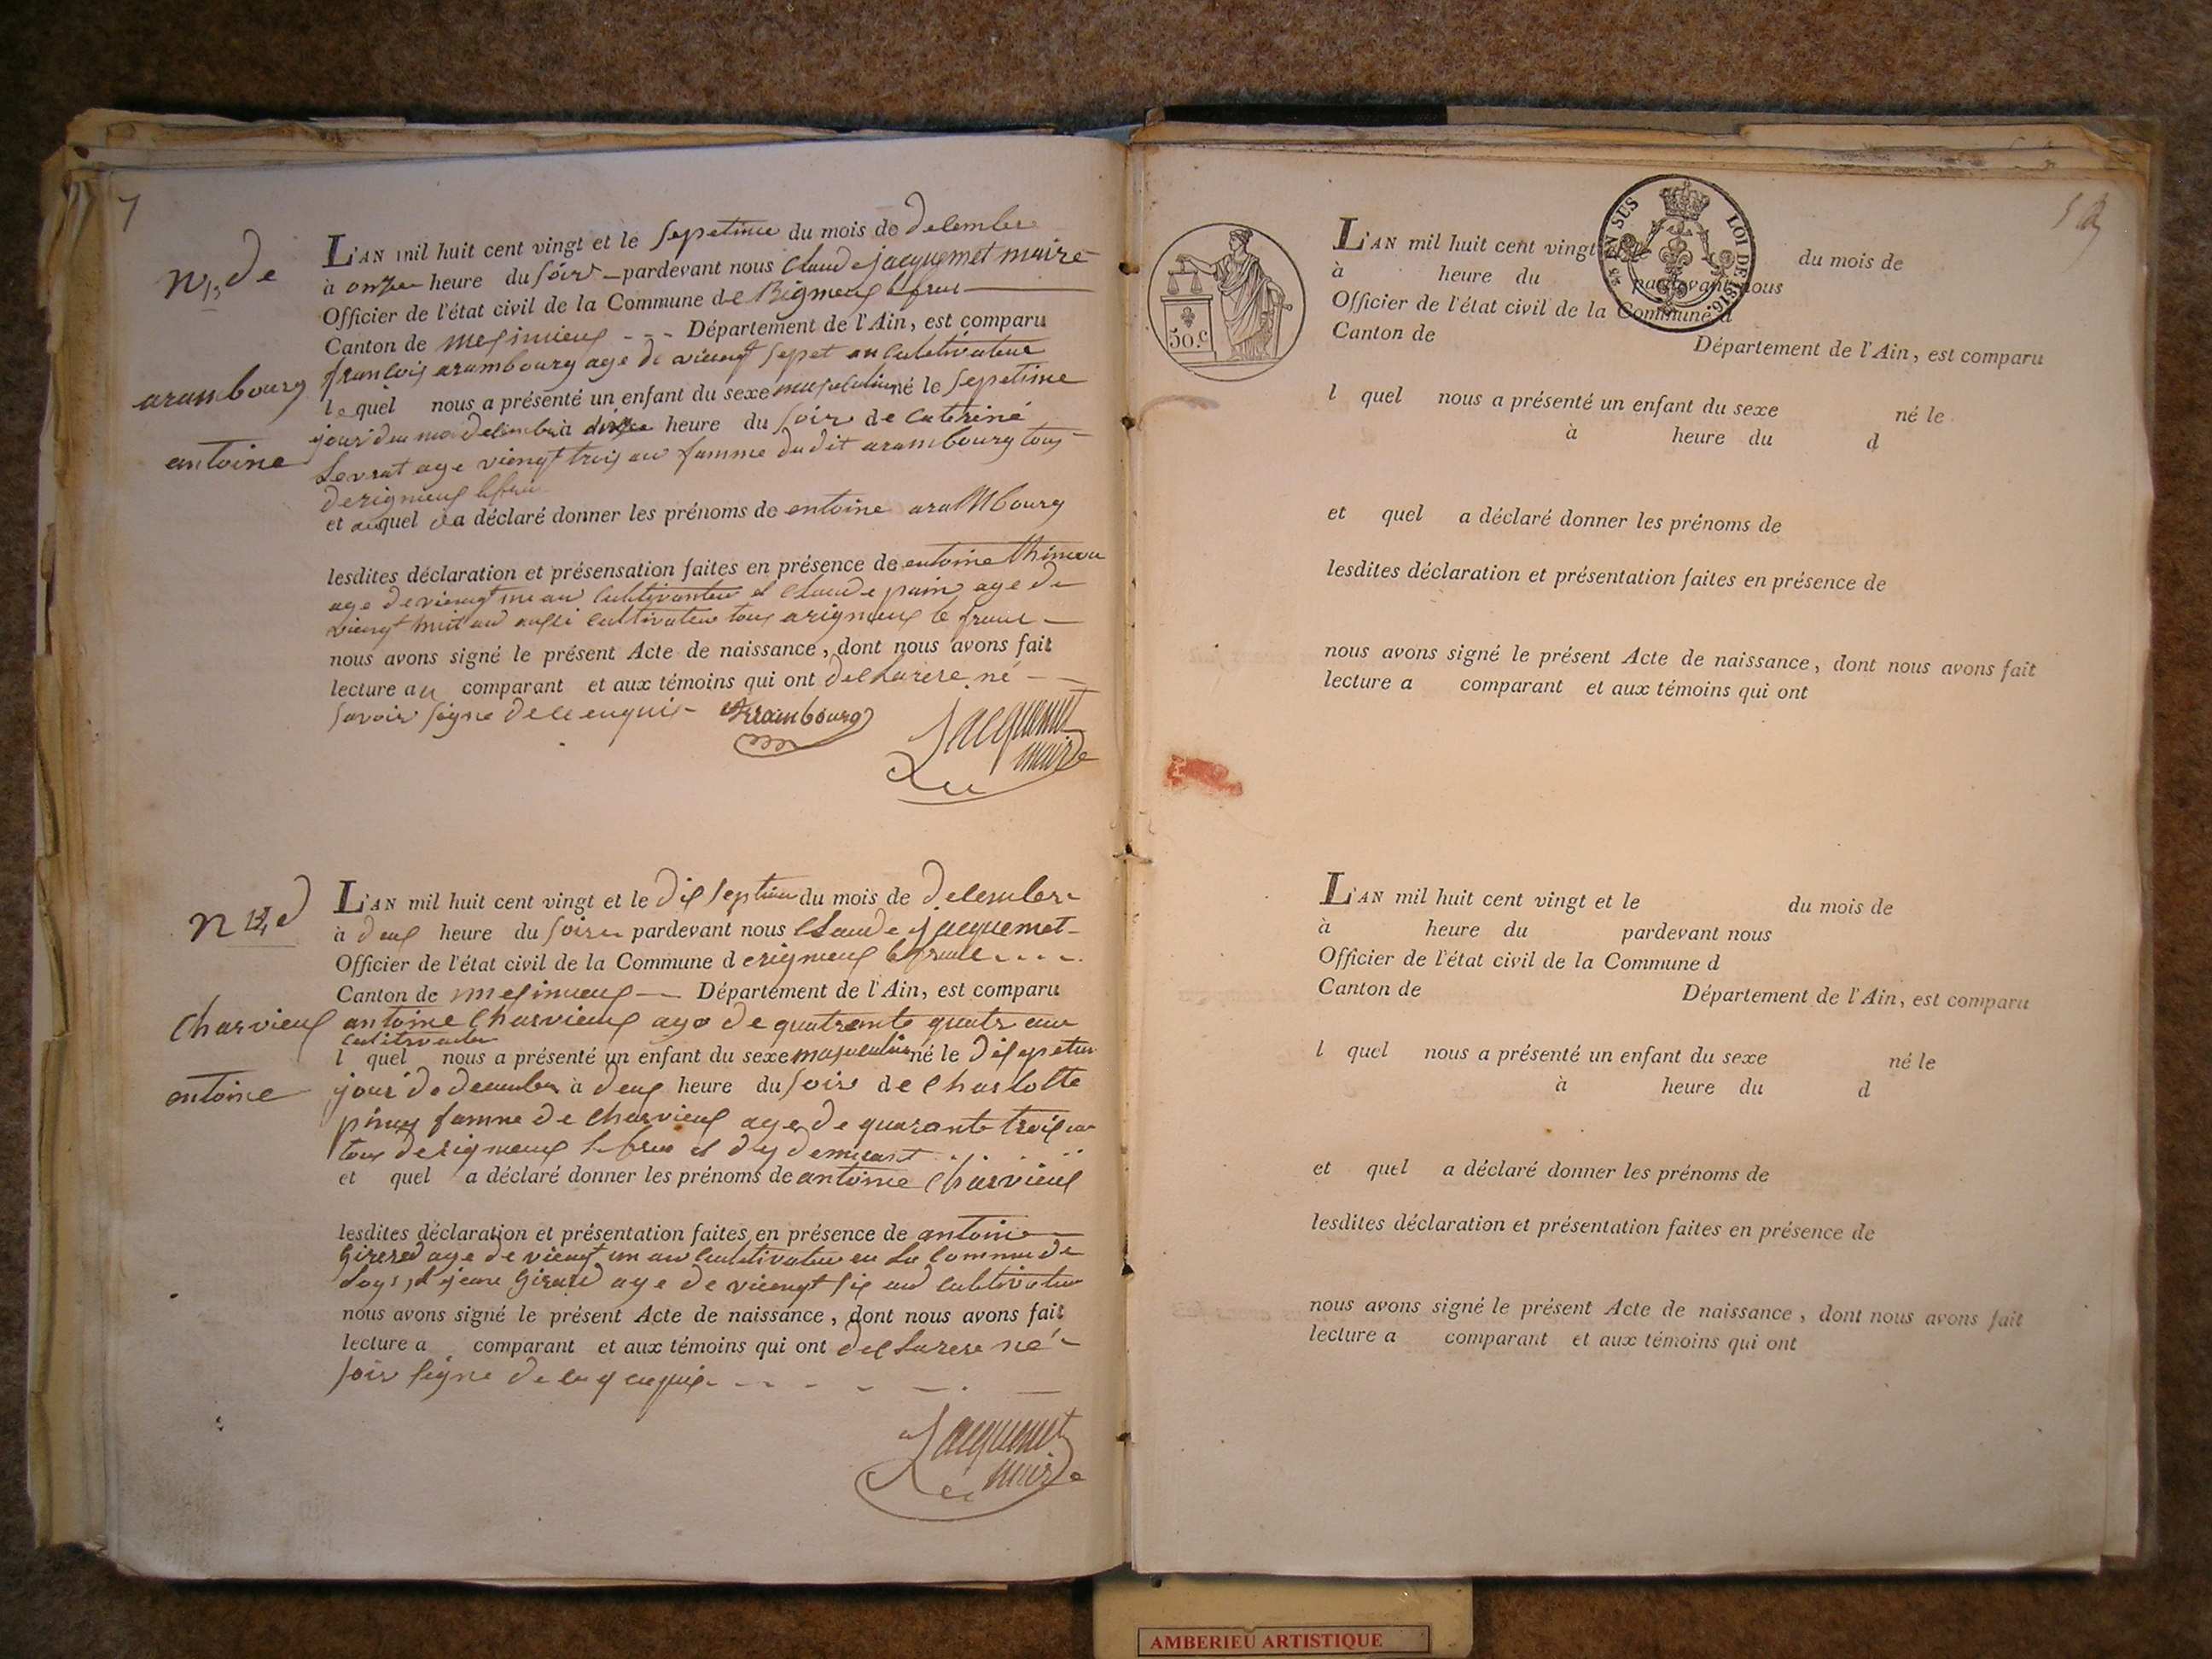 7
N 13 de
arambourg
antoine
L'AN mil huit cent vingt et le sepetime du mois de decembre
à onze heure du soir pardevant nous Claude jacquemet maire
Officier de l'état civil de la Commune de Rigmeux lefran
Canton de mesimieux Département de l'Ain, est comparu
francois arambourg age de vieengt sepet an culetivateur
lequel nous a présenté un enfant du sexe masculin né le sepetime
jour du moi decembre à dixe heure du soir de caterine
Levrat age viengt trois an famme du dit arambourg tous
de rigmeux lefran
et auquel a déclaré donner les prénoms de entoine arambourg
lesdites déclaration et présensation faites en présence de entoine
age de viengt un an cultivateur et Claude pain age de
viengt huit an aussi cultivateur tous a rigmeux le franc
nous avons signé le présent Acte de naissance, dont nous avons fait
lecture au comparant et aux témoins qui ont declarere né
savoir signe de ce enquis Arrambourg
Jacquemet
maire
N 14 d
Charvieux
antoine
L'AN mil huit cent vingt et le dis septime du mois de decembre
à deux heure du soire pardevant nous Claude jacquemet
Officier de l'état civil de la Commune de rigmeux le franc
Canton de mesimieux Département de l'Ain, est comparu
antoine Charvieux age de quatrante quatr an
cultivateur
l quel nous a présenté un enfant du sexe masculin né le disepetime
jour de decembre à deux heure du soir de Charlotte
famme de Charvieux age de quarante trois an
tous de rigmeux le fran et dy demeurant
et quel a déclaré donner les prénoms de antoine Charvieux
lesdites déclaration et présentation faites en présence de antoine
Girered age de viengt un an cultivateur en la commune de
Loys et jeane Girard age de viengt six and cultivateur
nous avons signé le présent Acte de naissance, dont nous avons fait
lecture a comparant et aux témoins qui ont declarere né
soir signe de ce enquis
Jacquemet
maire
50.C
EN SUS LOI DE 1816.
L'AN mil huit cent vingt et le du mois de
à heure du pardevant nous
Officier de l'état civil de la Commune d
Canton de Département de l'Ain, est comparu
l quel nous a présenté un enfant du sexe né le
à heure du d
et quel a déclaré donner les prénoms de
lesdites déclaration et présentation faites en présence de
nous avons signé le présent Acte de naissance, dont nous avons fait
lecture a comparant et aux témoins qui ont
L'AN mil huit cent vingt et le du mois de
à heure du pardevant nous
Officier de l'état civil de la Commune d
Canton de Département de l'Ain, est comparu
l quel nous a présenté un enfant du sexe né le
à heure du d
et quel a déclaré donner les prénoms de
lesdites déclaration et présentation faites en présence de
nous avons signé le présent Acte de naissance, dont nous avons fait
lecture a comparant et aux témoins qui ont
AMBERIEU ARTISTIQUE